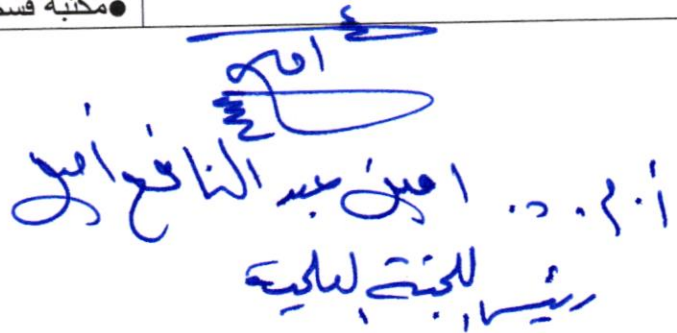 ●مكتبة قسم
أ.م.د. امين عبد النافع أمين
رئيس اللجنة العلمية